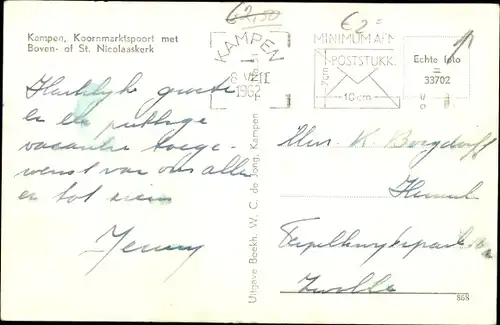 Kampen, Koornmarktspoort met
Boven- of St. Nicolaaskerk
€2,50
€ 2=
KAMPEN
1962
MINIMUM AFM.
POSTSTUKK.
10 cm
Echte foto
=
33702
Hartelijke groeten
en een prettige
vacantie toege-
wenst van ons allen
en tot ziens
Jenny
Uitgave Boekh. W. C. de Jong, Kampen
K. Borgdorff
Zwolle
868